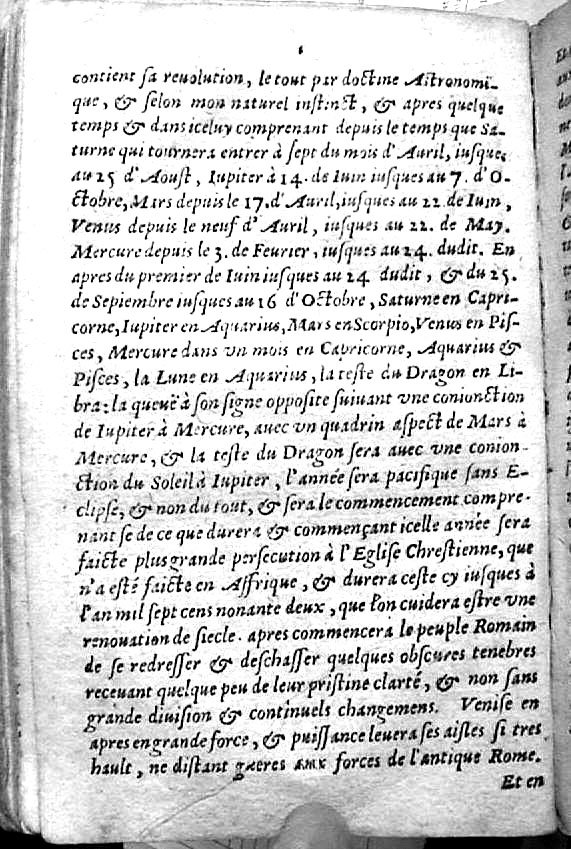 contient sa reuolution, le tout par doctine Astronomi-
que, & selon mon naturel instinct, & apres quelque
temps & dans iceluy comprenant depuis le temps que Sa-
turne qui tournera entrer à sept du mois d'Auril, iusques
au 25 d'Aoust, Iupiter à 14. de Iuin iusques au 7. d'O-
ctobre, Mars depuis le 17. d'Auril, iusques au 22. de Iuin,
Venus depuis le neuf d'Auril, iusques au 22. de May.
Mercure depuis le 3. de Feurier, iusques au 24. dudit. En
apres du premier de Iuin iusques au 24 dudit, & du 25.
de Septembre iusques au 16 d'Octobre, Saturne en Capri-
corne, Iupiter en Aquarius, Mars en Scorpio, Venus en Pis-
ces, Mercure dans vn mois en Capricorne, Aquarius &
Pisces, la Lune en Aquarius, la teste du Dragon en Li-
bra: la queuë à son signe opposite suiuant vne conionction
de Iupiter à Mercure, auec vn quadrin aspect de Mars à
Mercure, & la teste du Dragon sera auec vne conion-
ction du Soleil à Iupiter, l'année sera pacifique sans E-
clipse, & non du tout, & sera le commencement compre-
nant se de ce que durera & commençant icelle année sera
faicte plus grande persecution à l'Eglise Chrestienne, que
n'a esté faicte en Affrique, & durera ceste cy iusques à
l'an mil sept cens nonante deux, que l'on cuidera estre vne
renouation de siecle. apres commencera le peuple Romain
de se redresser & deschasser quelques obscures tenebres
receuant quelque peu de leur pristine clarté, & non sans
grande diuision & continuels changemens. Venise en
apres en grande force, & puissance leuera ses aisles si tres
hault, ne distant gueres aux forces de l'antique Rome.
Et en